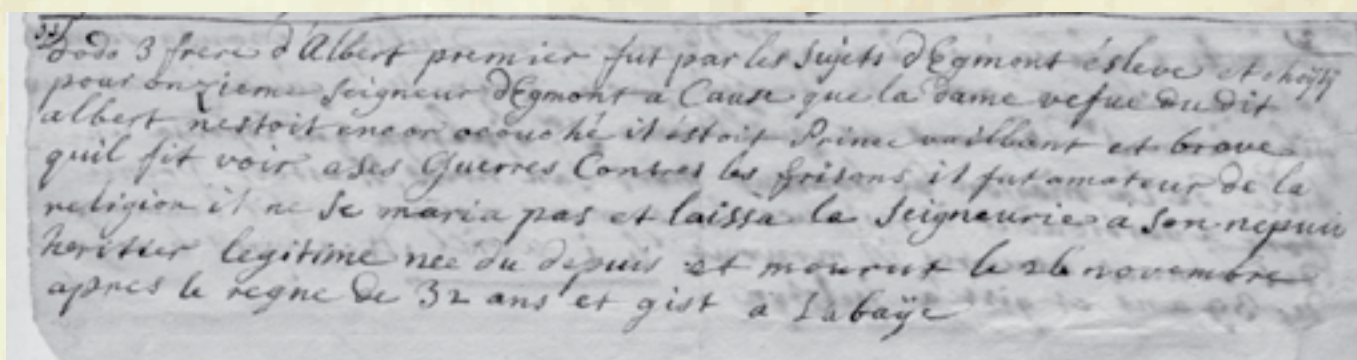 Dodo 3 frere d'Albert premier fut par les sujets d'Egmont esleve et choÿsÿ
pour onzieme seigneur d'Egmont a Cause que la dame vefue du dit
albert nestoit encor acouché il estoit Prince vaillant et brave
quil fit voir a ses Guerres Contres les frisons il fut amateur de la
religion il ne se maria pas et laissa la seigneurie a son nepueu
heritier legitime nee du depuis et mourut le 26 novembre
apres le regne de 32 ans et gist a Labaÿe